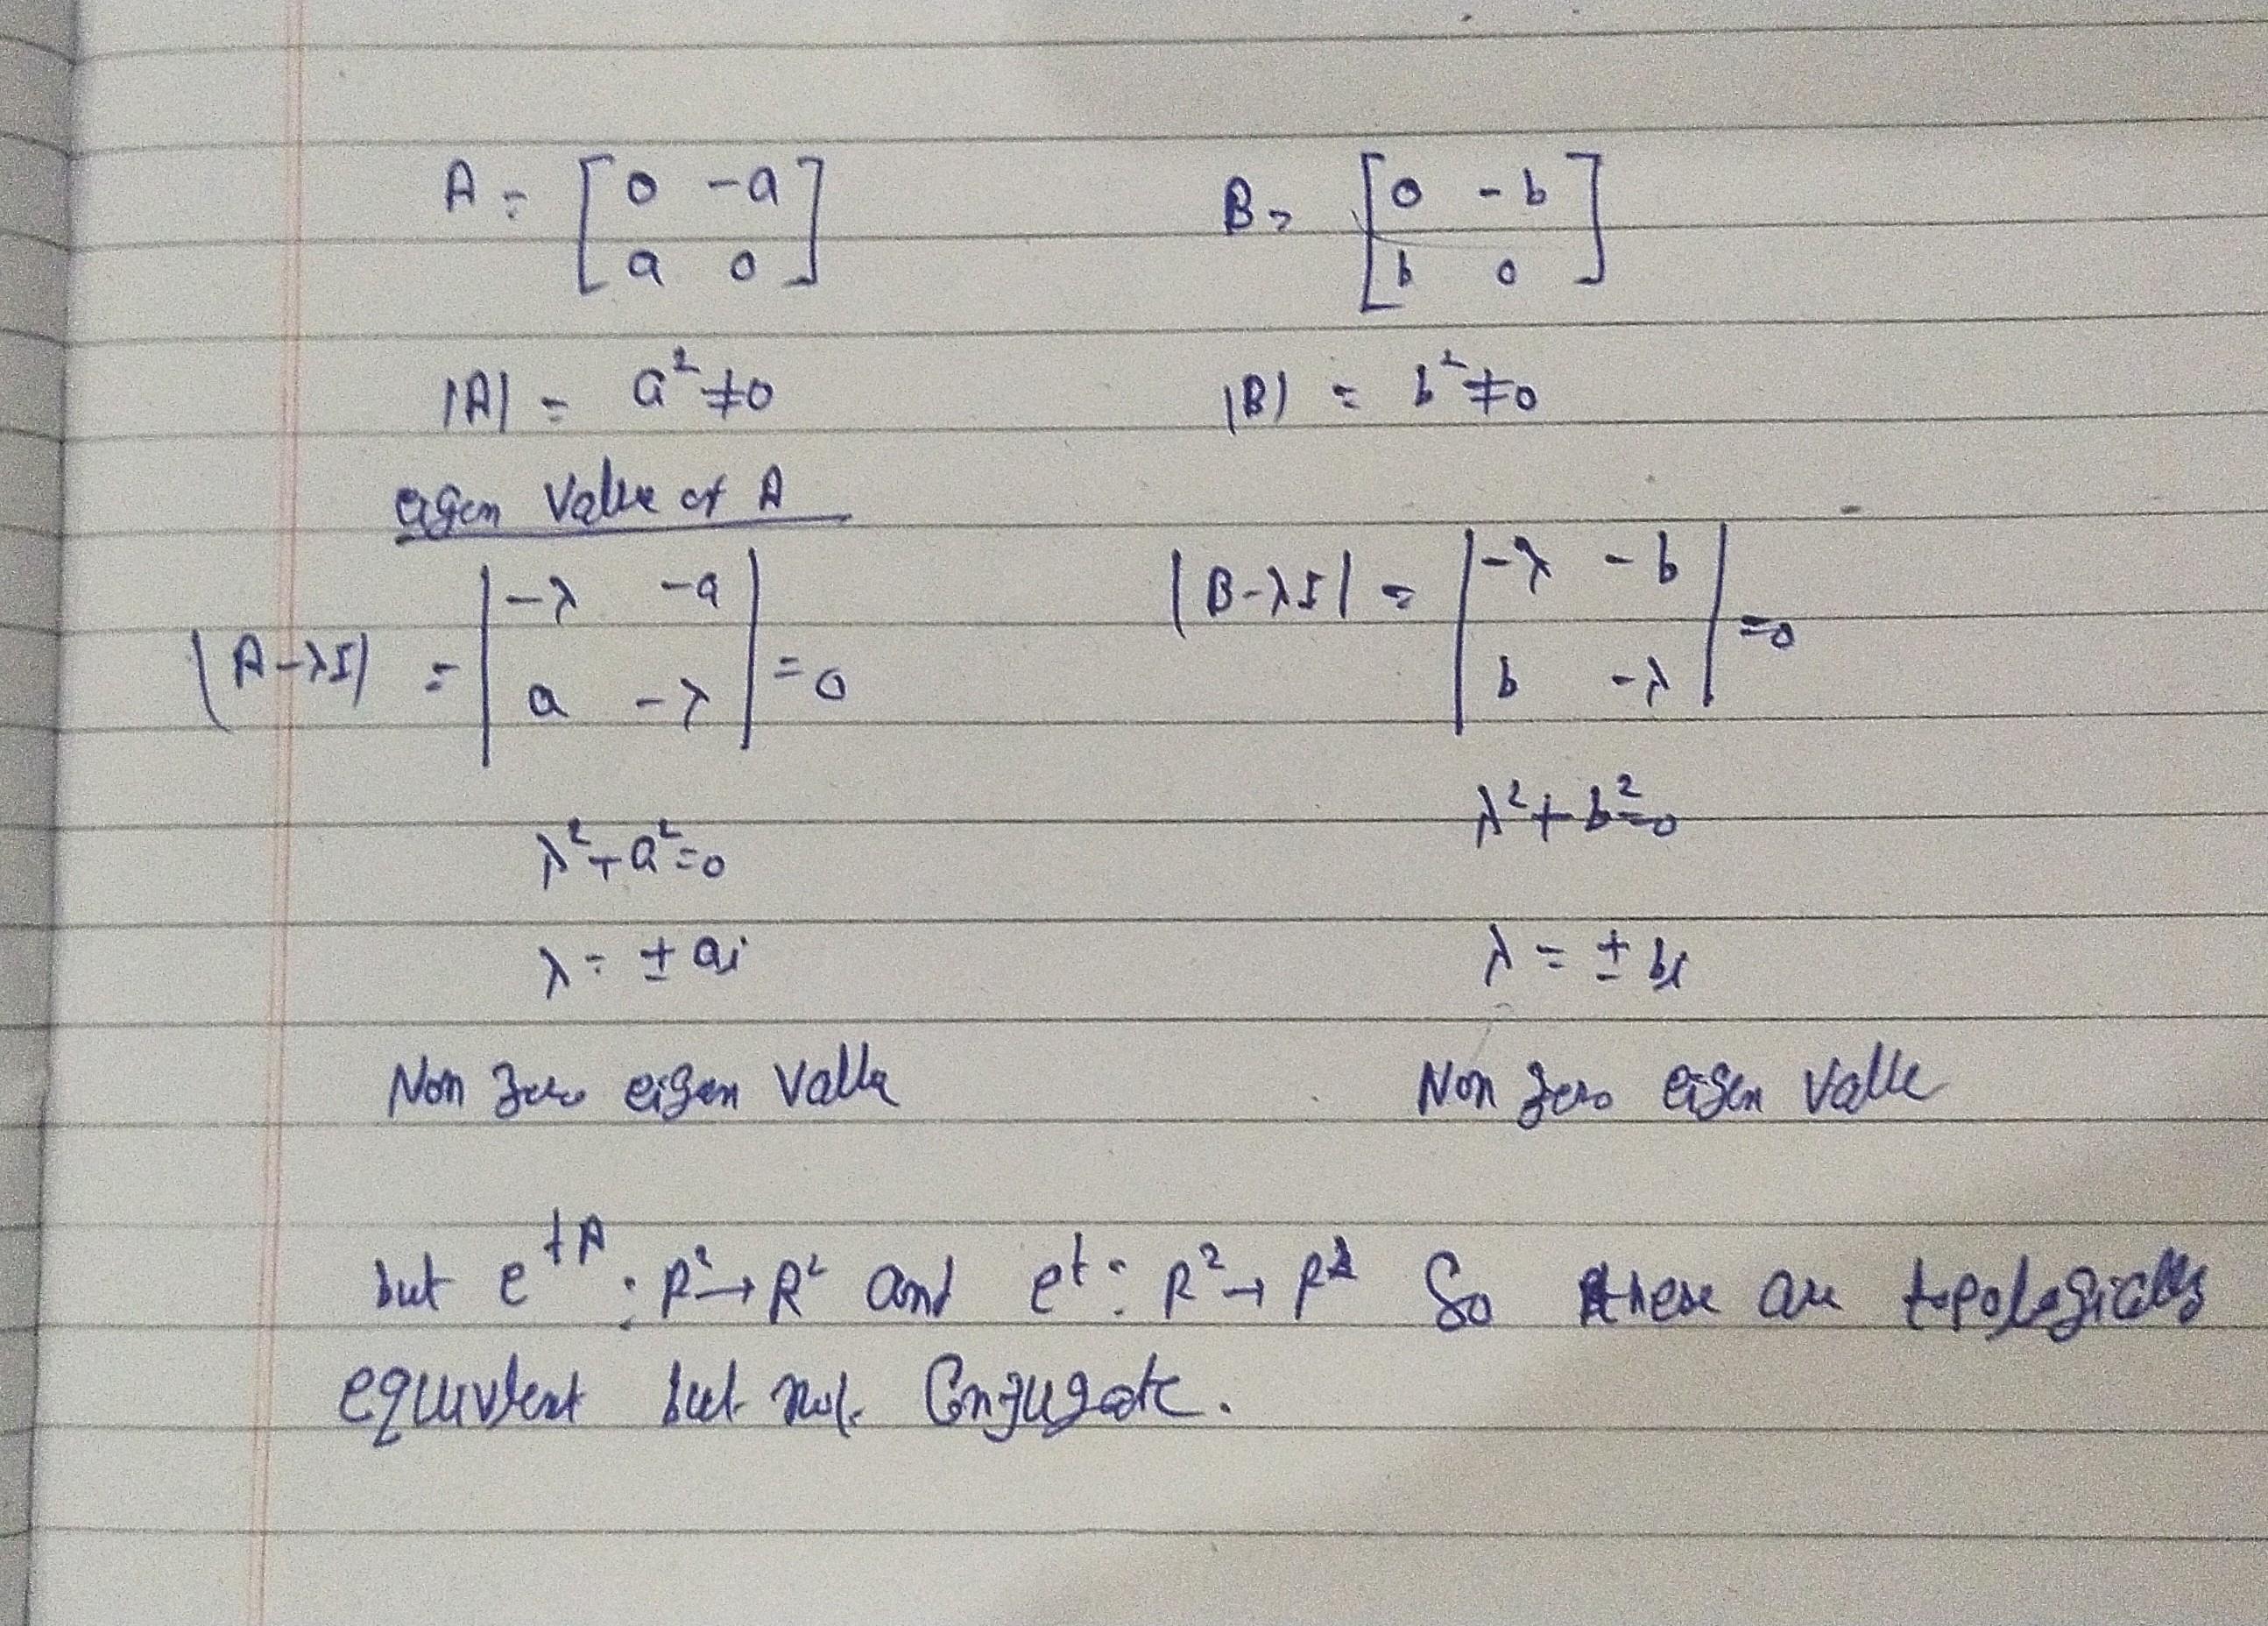 A = [0 -a B = [0 -b
a 0] b 0]
|A| = a² ≠ 0 |B| = b² ≠ 0
eigen value of A
|A-λI| = |-λ -a |B-λI| = |-λ -b
a -λ| = 0 b -λ| = 0
λ² + a² = 0 λ² + b² = 0
λ = ± ai λ = ± bi
Non zero eigen value Non zero eigen value
but e^{tA} : R² → R² and e^t : R² → R² So these are topologically
equivlent but not Conjugate.